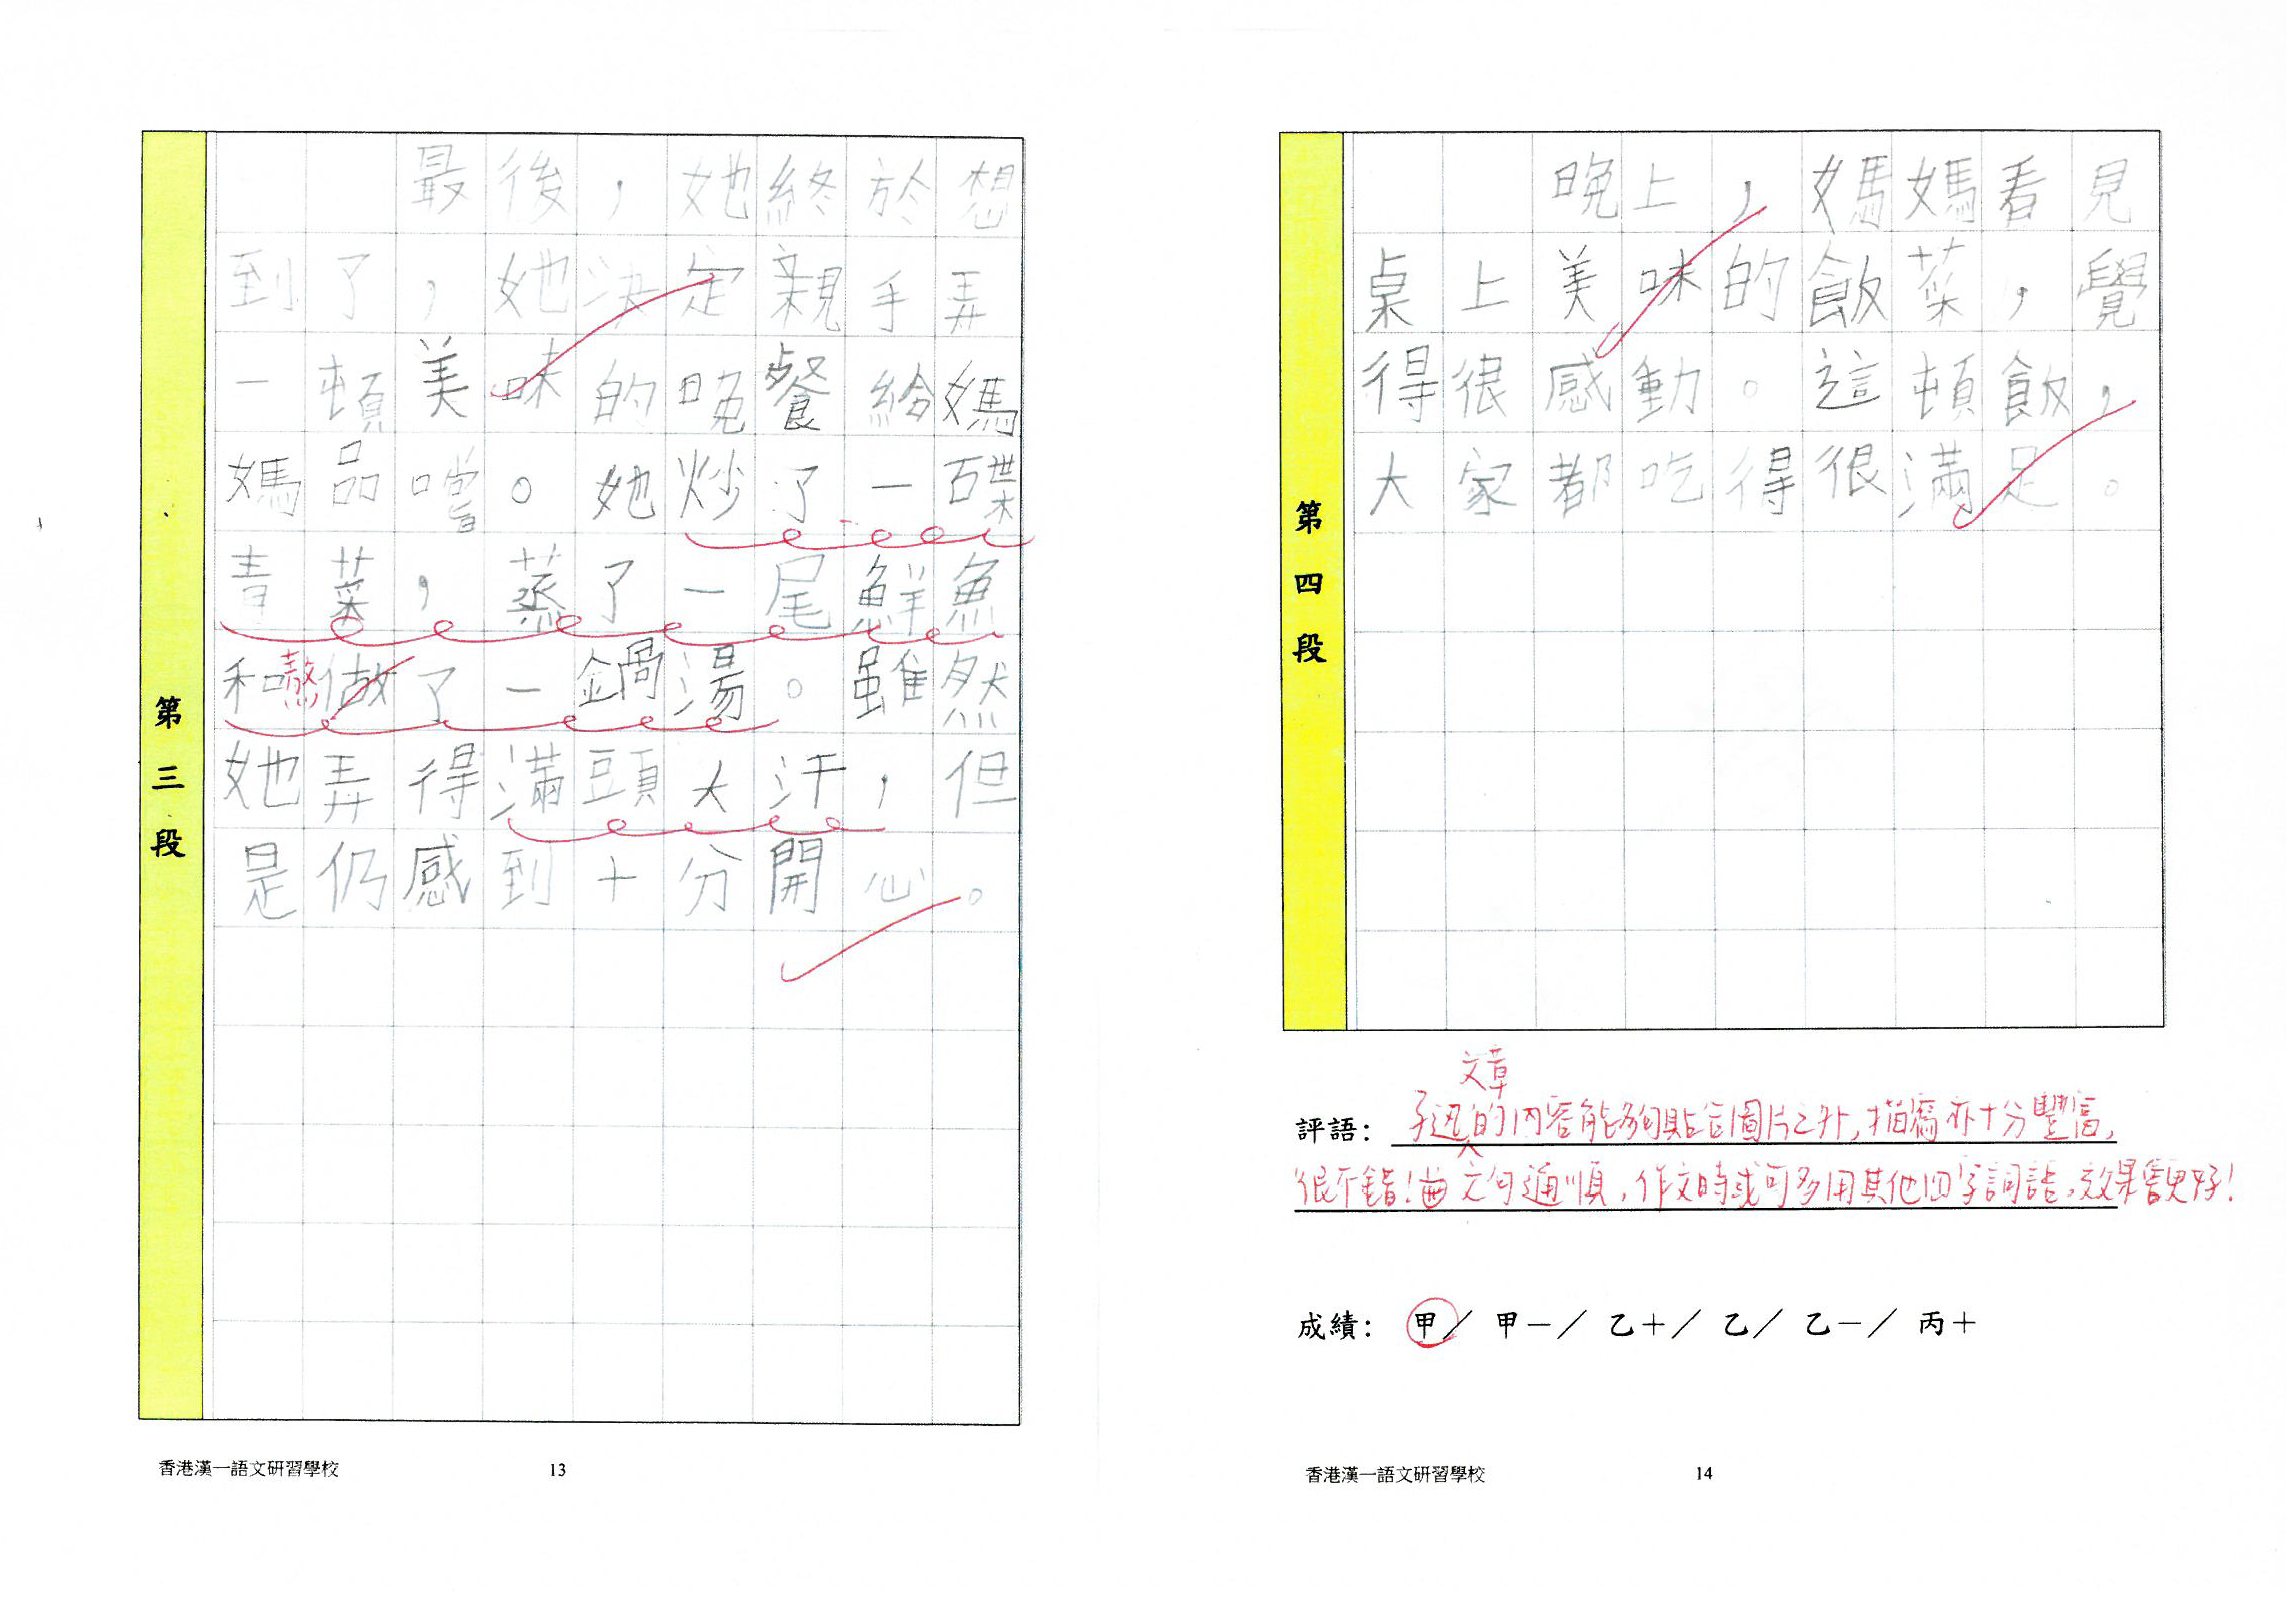 第三段
最後，她終於想
到了，她決定親手弄
一頓美味的晚餐給媽
媽品嚐。她炒了一碟
青菜，蒸了一尾鮮魚
和熬做了一鍋湯。雖然
她弄得滿頭大汗，但
是仍感到十分開心。
香港漢一語文研習學校 13
第四段
晚上，媽媽看見
桌上美味的飯菜，覺
得很感動。這頓飯，
大家都吃得很滿足。
文章
評語：子迅的內容能夠貼合圖片之外，描寫亦十分豐富，
很不錯！文句通順，作文時或可多用其他四字詞語，效果會更好！
成績：甲／甲－／乙＋／乙／乙－／丙＋
香港漢一語文研習學校 14